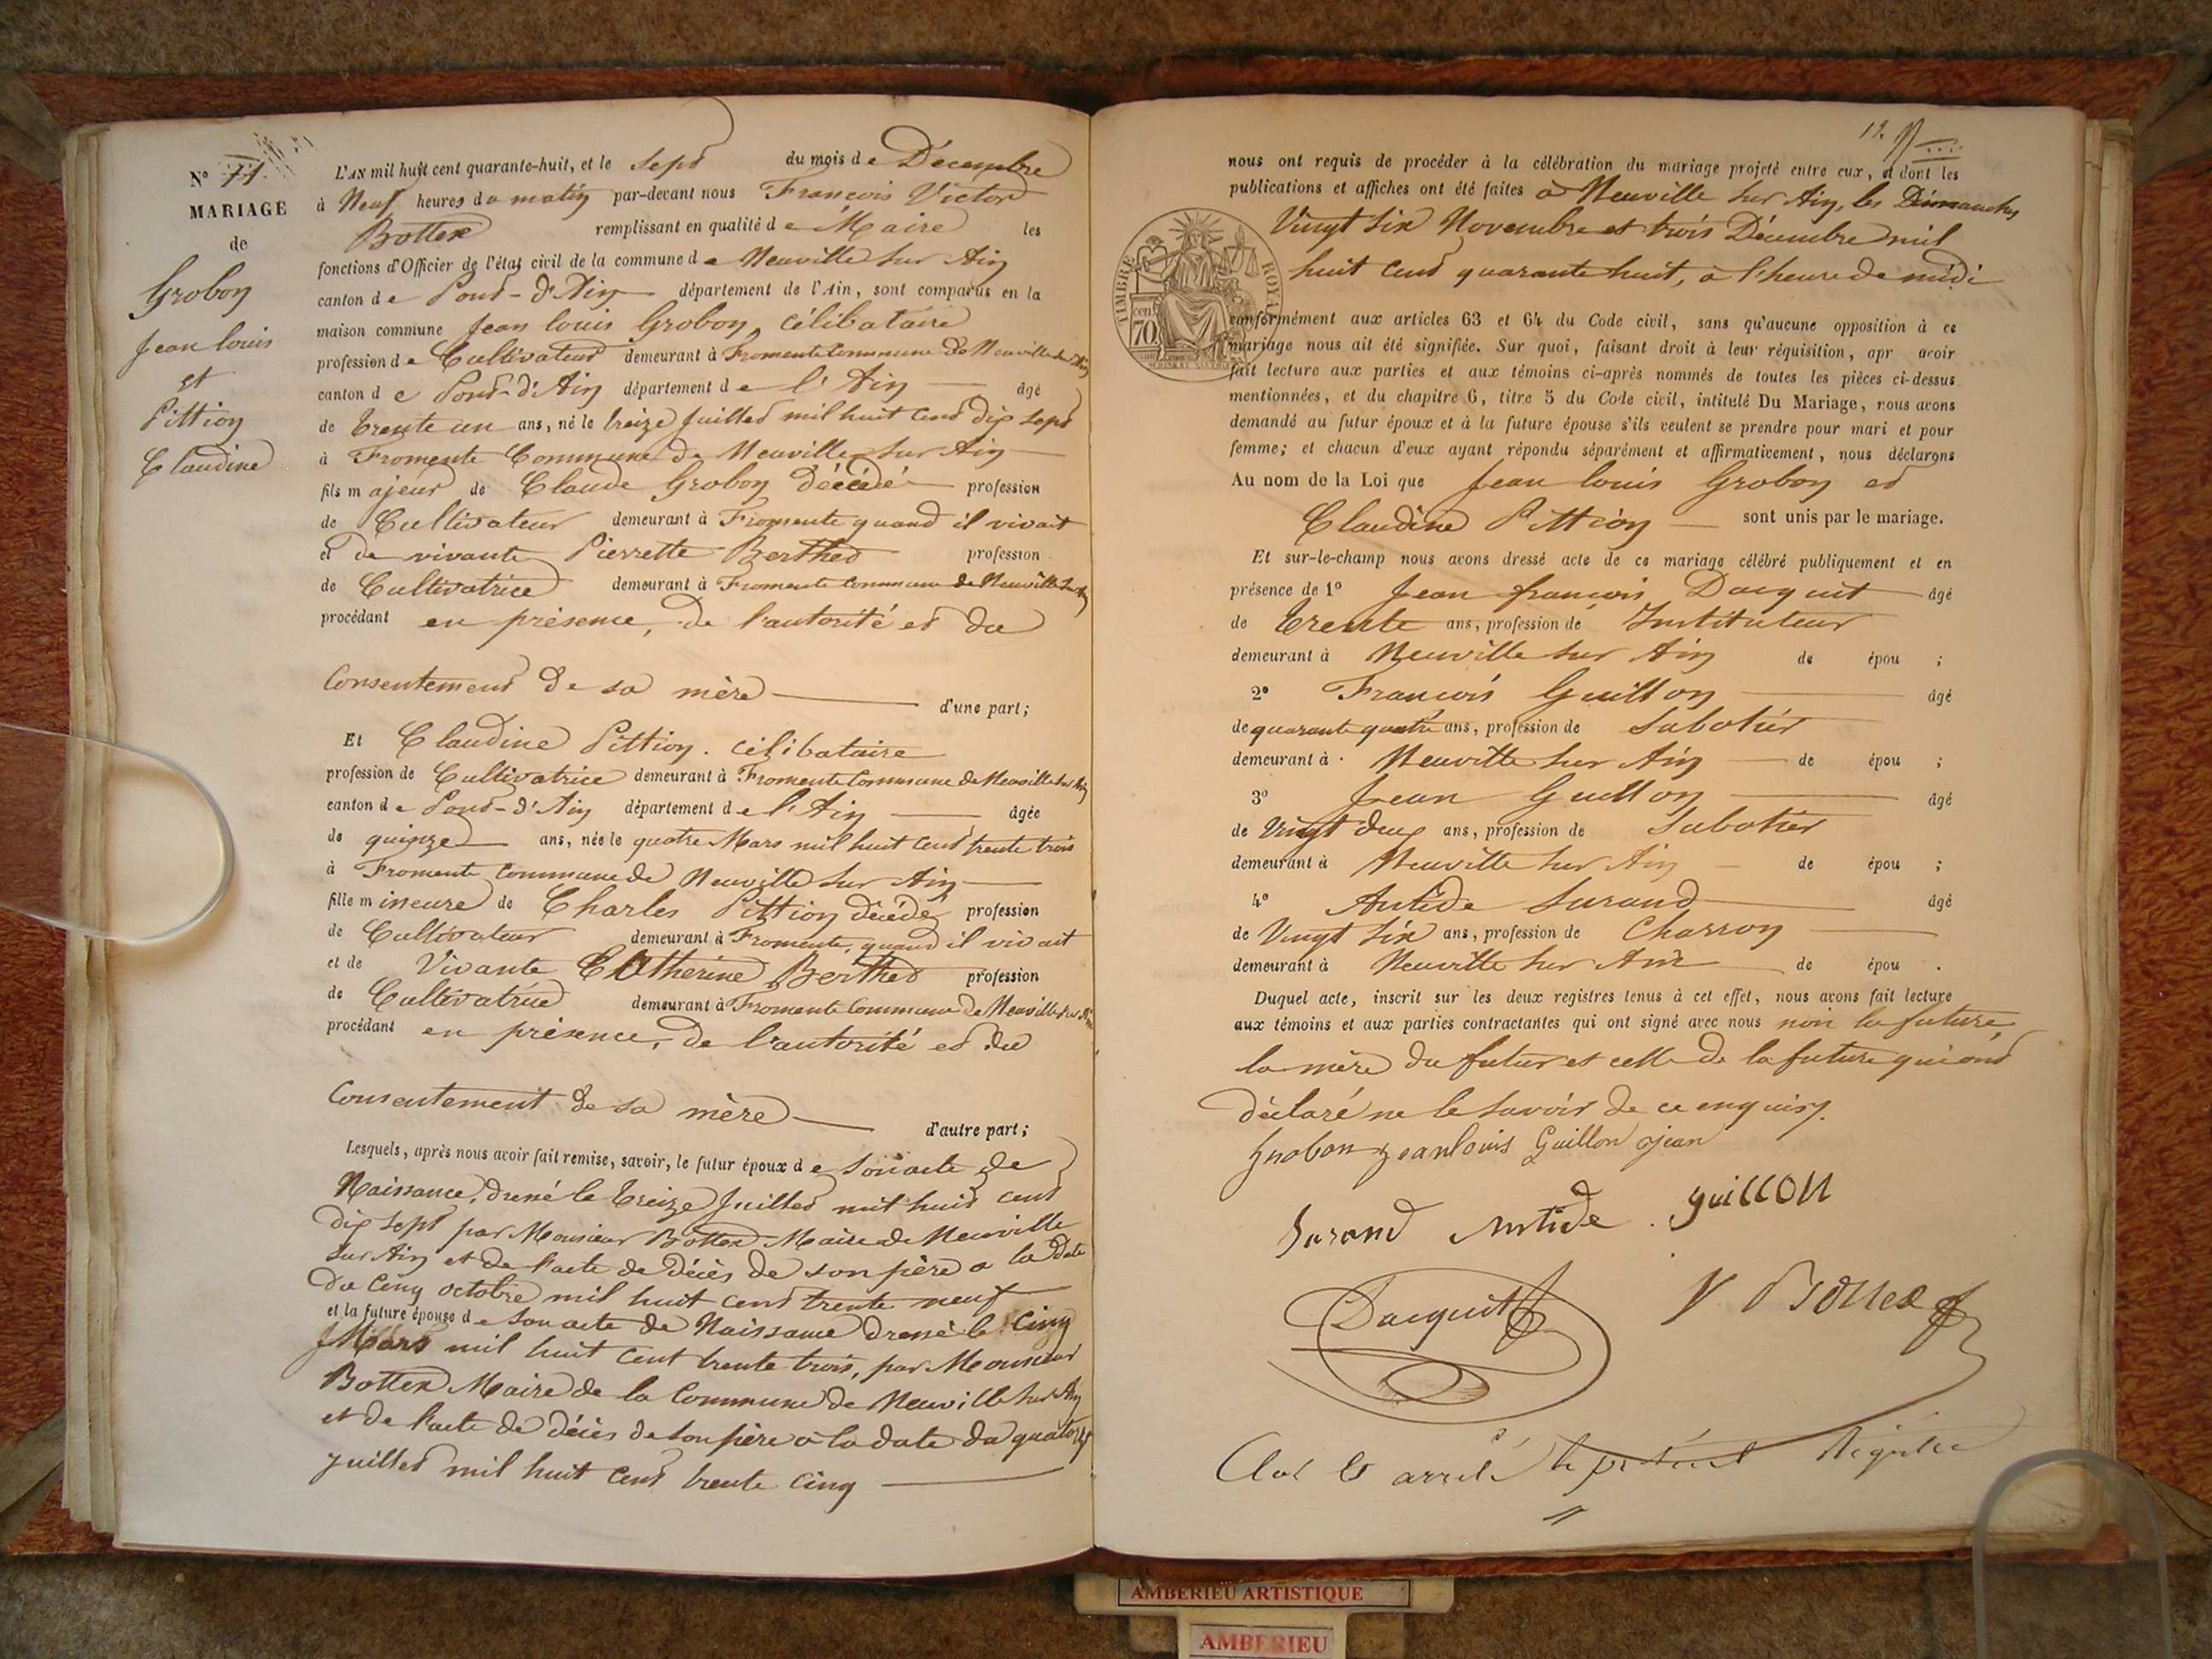 N° 11.
MARIAGE
de
Grobon
Jean louis
et
Pittion
Claudine
L'AN mil huit cent quarante-huit, et le Sept du mois de Décembre
à Neuf heures du matin par-devant nous François Victor
Bottex remplissant en qualité de Maire les
fonctions d'Officier de l'état civil de la commune de Neuville sur Ain
canton de Pont-d'Ain département de l'Ain, sont comparus en la
maison commune Jean louis Grobon, célibataire
profession de Cultivateur demeurant à Fromente Commune de Neuville sur Ain
canton de Pont-d'Ain département de l'Ain âgé
de trente un ans, né le treize Juillet mil huit cent dix sept
à Fromente Commune de Neuville sur Ain
fils majeur de Claude Grobon décédé profession
de Cultivateur demeurant à Fromente quand il vivait
et de vivante Pierrette Berthet profession
de Cultivatrice demeurant à Fromente Commune de Neuville sur Ain
procédant en présence, de l'autorité et du
Consentement de sa mère d'une part;
Et Claudine Pittion. célibataire
profession de Cultivatrice demeurant à Fromente Commune de Neuville sur Ain
canton de Pont-d'Ain département de l'Ain âgée
de quinze ans, née le quatre Mars mil huit cent trente trois
à Fromente Commune de Neuville sur Ain
fille mineure de Charles Pittion décédé profession
de Cultivateur demeurant à Fromente, quand il vivait
et de Vivante Catherine Berthet profession
de Cultivatrice demeurant à Fromente Commune de Neuville sur Ain
procédant en présence, de l'autorité et du
Consentement de sa mère d'autre part;
Lesquels, après nous avoir fait remise, savoir, le futur époux de son acte de
Naissance, dressé le treize Juillet mil huit cent
dix sept par Monsieur Bottex Maire de Neuville
sur Ain et de l'acte de décès de son père a la date
du cinq octobre mil huit cent trente neuf
et la future épouse de son acte de Naissance dressé le Cinq
Mars mil huit cent trente trois, par Monsieur
Bottex Maire de la Commune de Neuville sur Ain
et de l'acte de décès de son père à la date du quatorze
juillet mil huit cent trente cinq
12.
nous ont requis de procéder à la célébration du mariage projeté entre eux, et dont les
publications et affiches ont été faites à Neuville sur Ain, les Dimanches
Vingt six Novembre et trois Décembre mil
huit cent quarante huit, à l'heure de midi
TIMBRE ROYAL
70 cen
conformément aux articles 63 et 64 du Code civil, sans qu'aucune opposition à ce
mariage nous ait été signifiée. Sur quoi, faisant droit à leur réquisition, apr avoir
fait lecture aux parties et aux témoins ci-après nommés de toutes les pièces ci-dessus
mentionnées, et du chapitre 6, titre 5 du Code civil, intitulé Du Mariage, nous avons
demandé au futur époux et à la future épouse s'ils veulent se prendre pour mari et pour
femme; et chacun d'eux ayant répondu séparément et affirmativement, nous déclarons
Au nom de la Loi que Jean louis Grobon et
Claudine Pittion sont unis par le mariage.
Et sur-le-champ nous avons dressé acte de ce mariage célébré publiquement et en
présence de 1° Jean françois Dacquit âgé
de trente ans, profession de Instituteur
demeurant à Neuville sur Ain de épou ;
2° François Guillon âgé
de quarante quatre ans, profession de Sabotier
demeurant à Neuville sur Ain de épou ;
3° Jean Guillon âgé
de Vingt deux ans, profession de Sabotier
demeurant à Neuville sur Ain de épou ;
4° Antide Durand âgé
de Vingt six ans, profession de Charron
demeurant à Neuville sur Ain de épou .
Duquel acte, inscrit sur les deux registres tenus à cet effet, nous avons fait lecture
aux témoins et aux parties contractantes qui ont signé avec nous non la future,
la mère du futur et celle de la future qui ont
déclaré ne le savoir de ce enquis.
Grobon jeanlouis Guillon jean
Durand Antide. guillon
Dacquit V Bottex
Clos et arrêté le présent Registre
AMBERIEU ARTISTIQUE
AMBERIEU